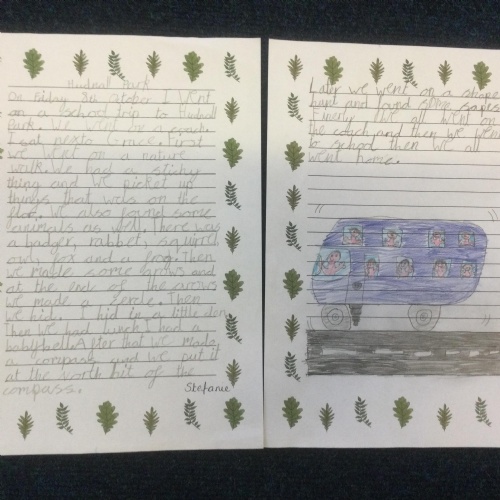 Hudnall Park
On friday 3th October I went
on a school trip to Hudnall
Park. We went on a coach.
I sat nexto Grace. First
we went on a nature
walk. We had a sticky
thing and we picket up
things that was on the
floor. We also found some
animals as well. There was
a badger, rabbit, squirrel
owl, fox and a frog. Then
we made some arrows and
at the end of the arrows
we made a Sercle. Then
we hid. I hid in a little den
Then we had lunch I had a
babybell. After that we made
a compass and we put it
at the north bit of the
compass.
Stefanie
Later we went on a shape
hunt and found some
Finerly we all went on
the coach and then we went
to school then we all
went home.